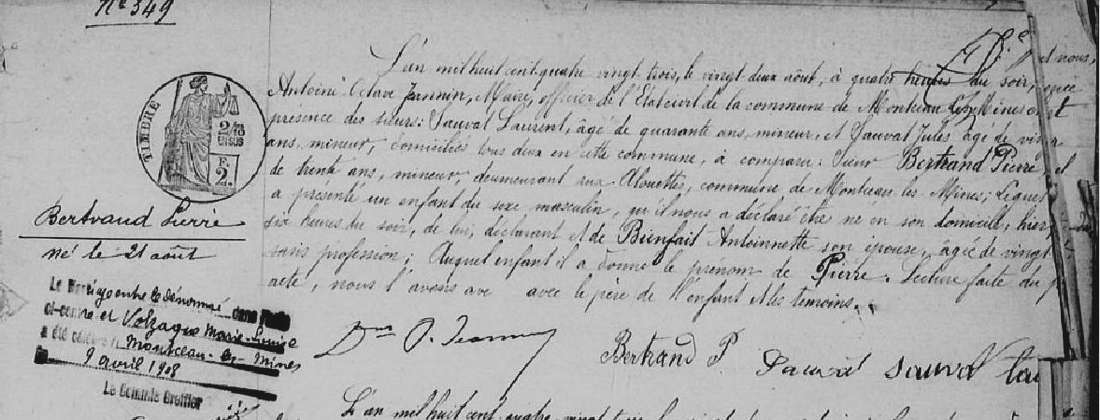 N° 349
L'an mil huit cent quatre vingt trois, le vingt deux août, à quatre heures du soir,
Antoine Octave Jannin, Maire, officier de l'Etat civil de la commune de Montceau les Mines
présence des sieurs: Sauvat Laurent, âgé de quarante ans, mineur, et Sauvat Jules âgé de
ans, mineur, domiciliés tous deux en cette commune, a comparu: Sieur Bertrand Pierre,
de trente ans, mineur, demeurant aux Alouettes, commune de Montceau les Mines; Lequel
a présenté un enfant du sexe masculin, qu'il nous a déclaré être né en son domicile, hier
six heures du soir, de lui, déclarant et de Bienfait Antoinnette son épouse, âgée de vingt
sans profession; Auquel enfant il a donné le prénom de Pierre. Lecture faite du
acte, nous l'avons avec le père de l'enfant et les témoins.
TIMBRE
2/10
EN SUS
F.
2
Bertrand Pierre
né le 21 août
Le Mariage entre le dénommé
ci-contre et Marie-Louise
a été célébré à Montceau-les-Mines
le 9 avril 1908
Le Commis Greffier
Bertrand P. Sauvat Sauvat
L'an mil huit cent quatre vingt trois, le vingt